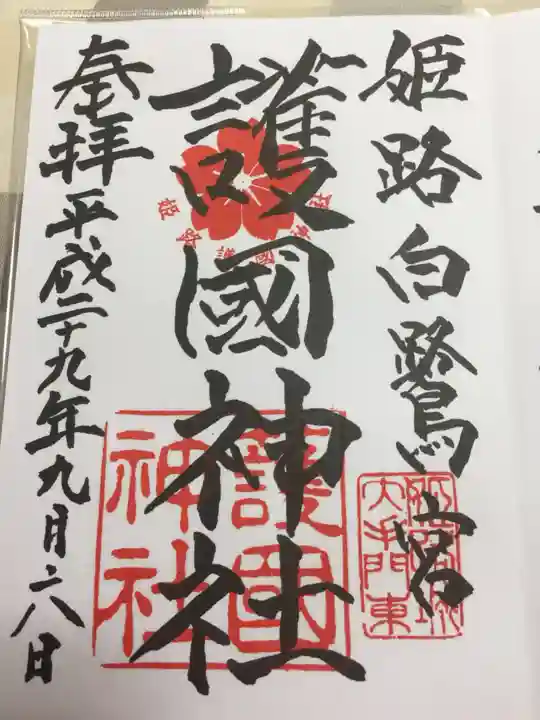 姫路白鷺宮
護國神社
奉拝平成二十九年九月六日
姫路護國神社
護国神社
姫路城大手門東